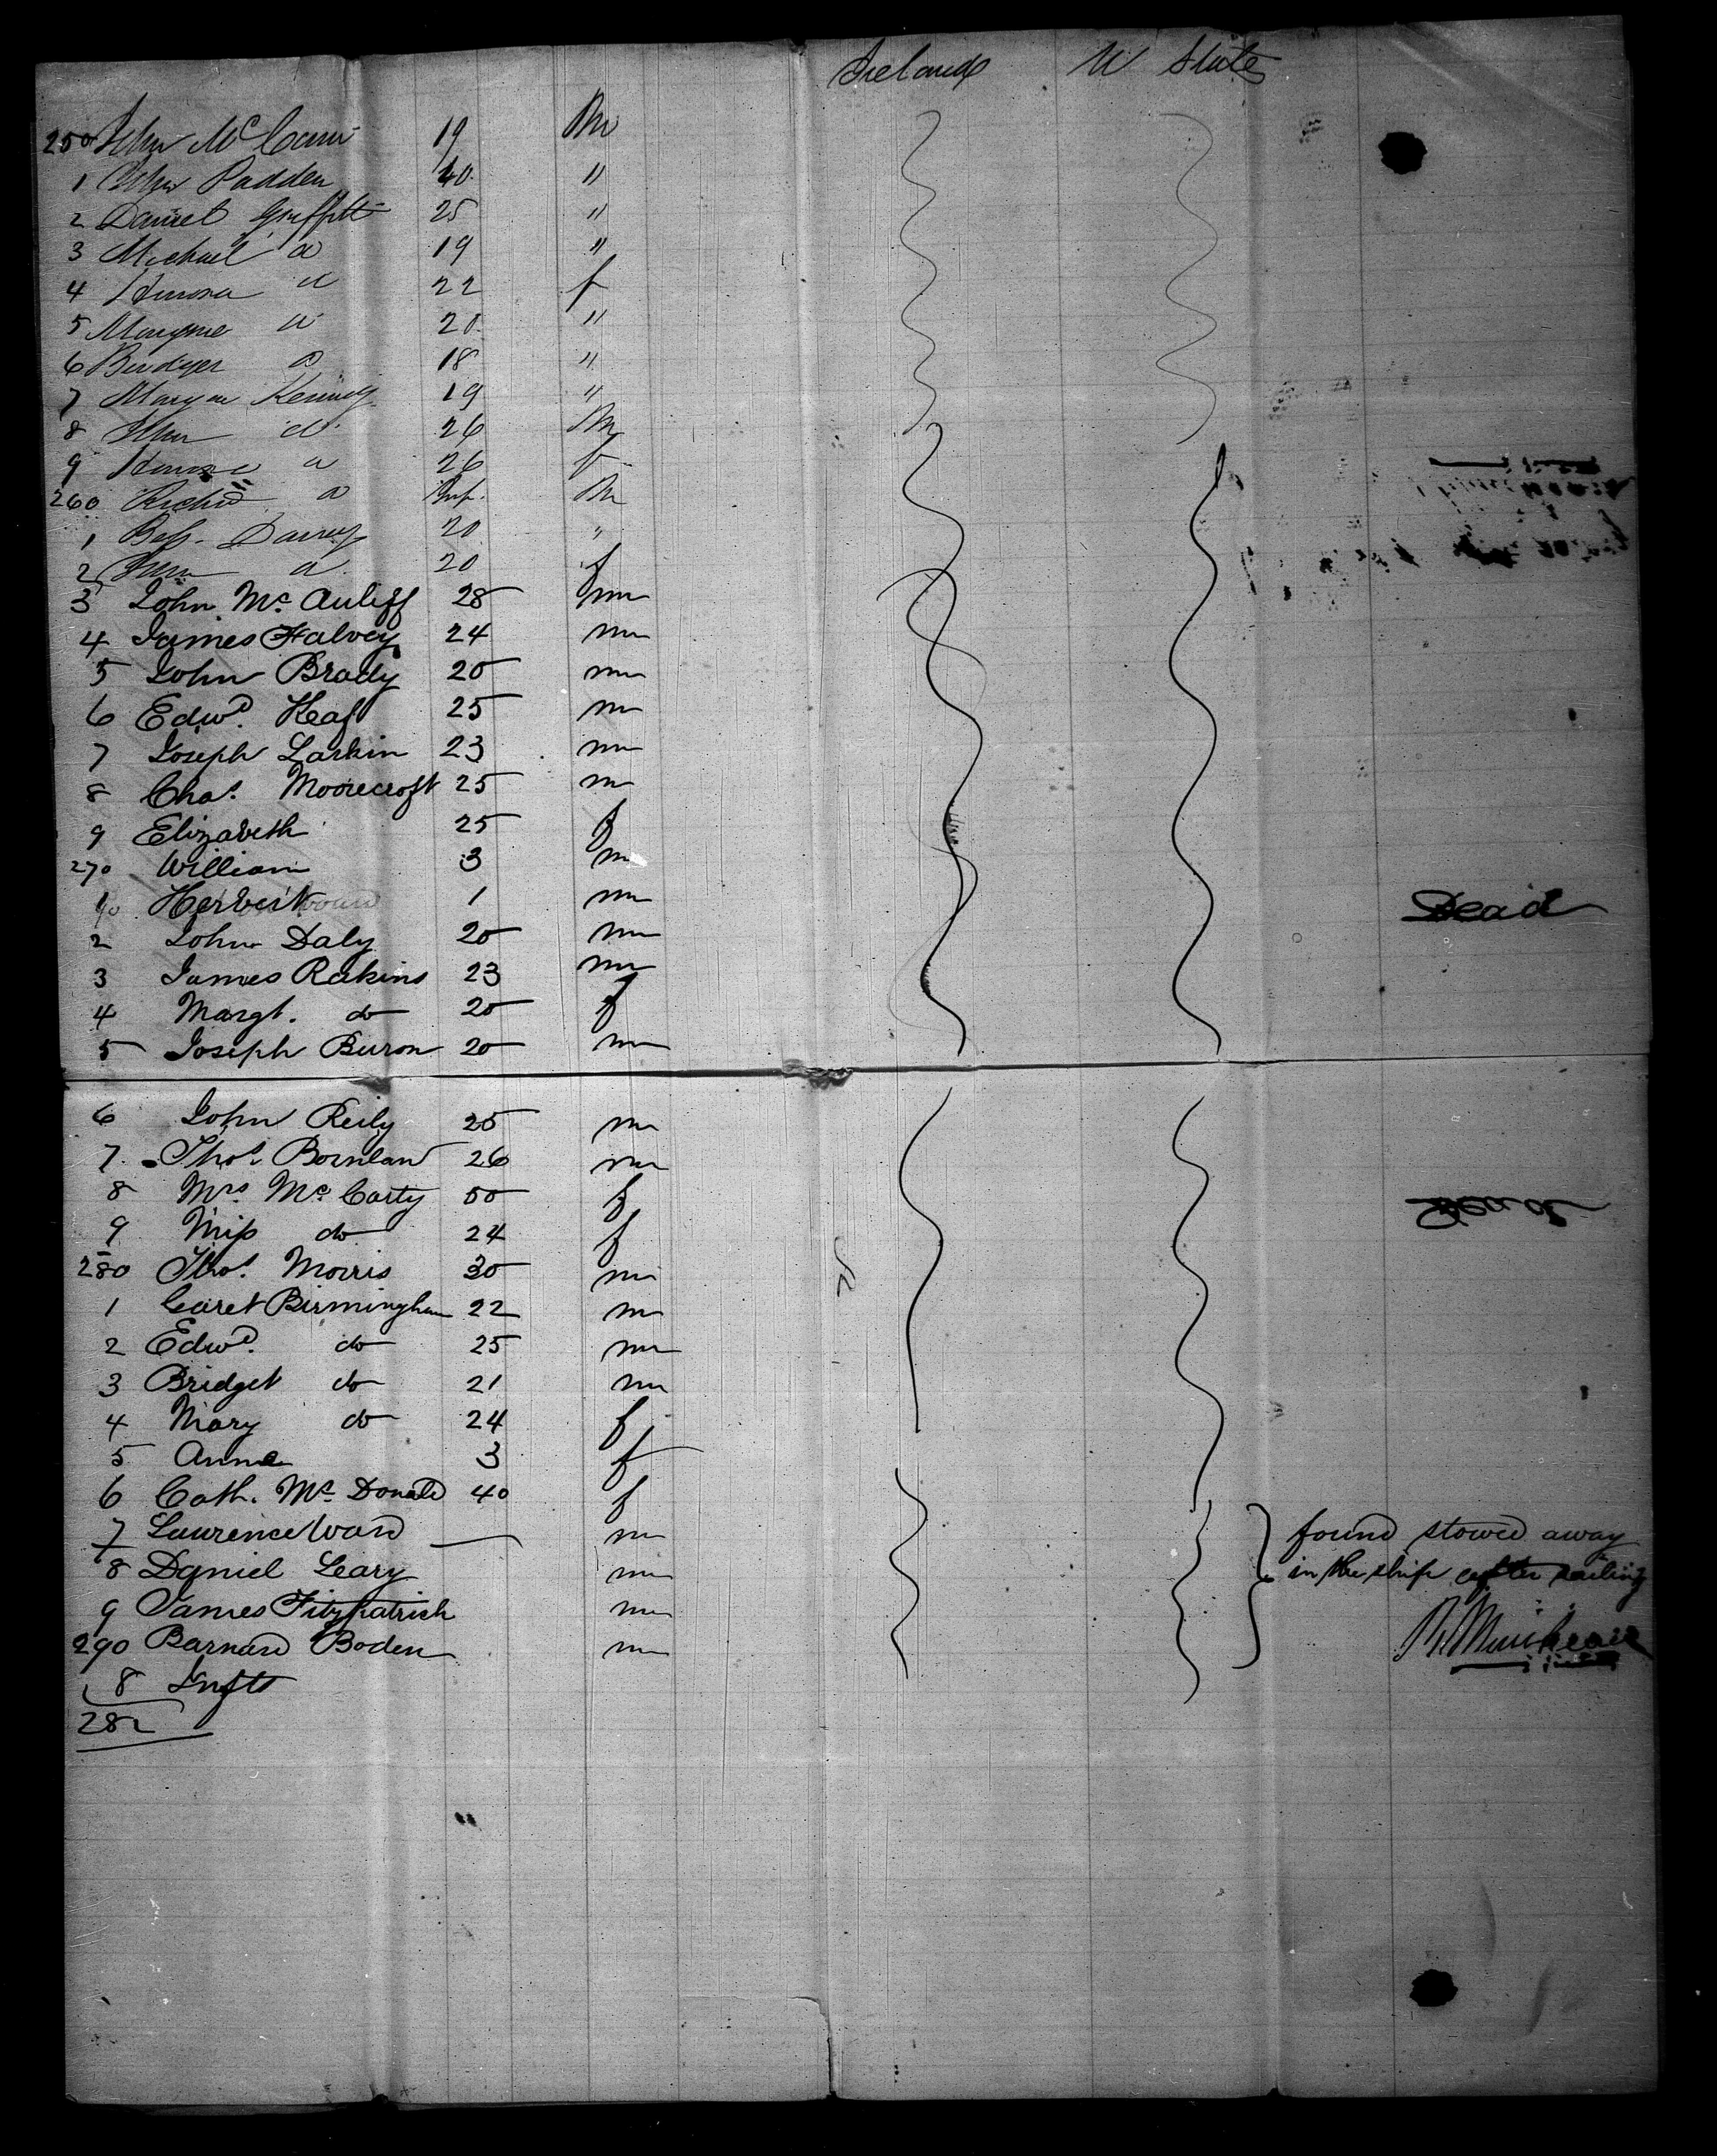 Ireland U States
250 John McCann 19 M
1 John Padden 40 "
2 Daniel Griffitt 25 "
3 Michael do 19 "
4 Honora do 22 f
5 do 20 "
6 do 18 "
7 Kennedy 19 "
8 John do 26 M
9 Honora do 26 f
260 Richd do Inf. M
1 20 "
2 do 20 f
3 John Mc Auliff 28 m
4 James Falvey 24 m
5 John Brady 20 m
6 Edwd. Keaf 25 m
7 Joseph Larkin 23 m
8 Chas. Moorecroft 25 m
9 Elizabeth 25 f
270 William 3 m
1 Herbert 1 m Dead
2 John Daly 20 m
3 James Rakins 23 m
4 Margt. do 20 f
5 Joseph Buron 20 m
6 John Reily 25 m
7 Thos. Bornlan 26 m
8 Mrs Mc Carty 50 f
9 Miss do 24 f
280 Thos. Morris 30 m
1 Caret Birmingham 22 m
2 Edwd. do 25 m
3 Bridget do 21 m
4 Mary do 24 f
5 Anna 3 f
6 Cath. Mc Donald 40 f
7 Laurence Ward — m found stowed away
8 Daniel Leary m in the ship after sailing
9 James Fitzpatrick m
290 Barnard Boden m
8 Infts
282